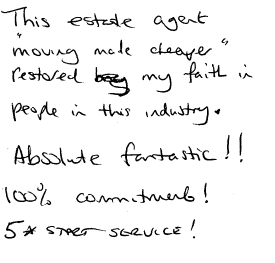 This estate agent
"moving made cheaper"
restored my faith in
people in this industry.
Absolute fantastic!!
100% commitment!
5* STAR SERVICE!